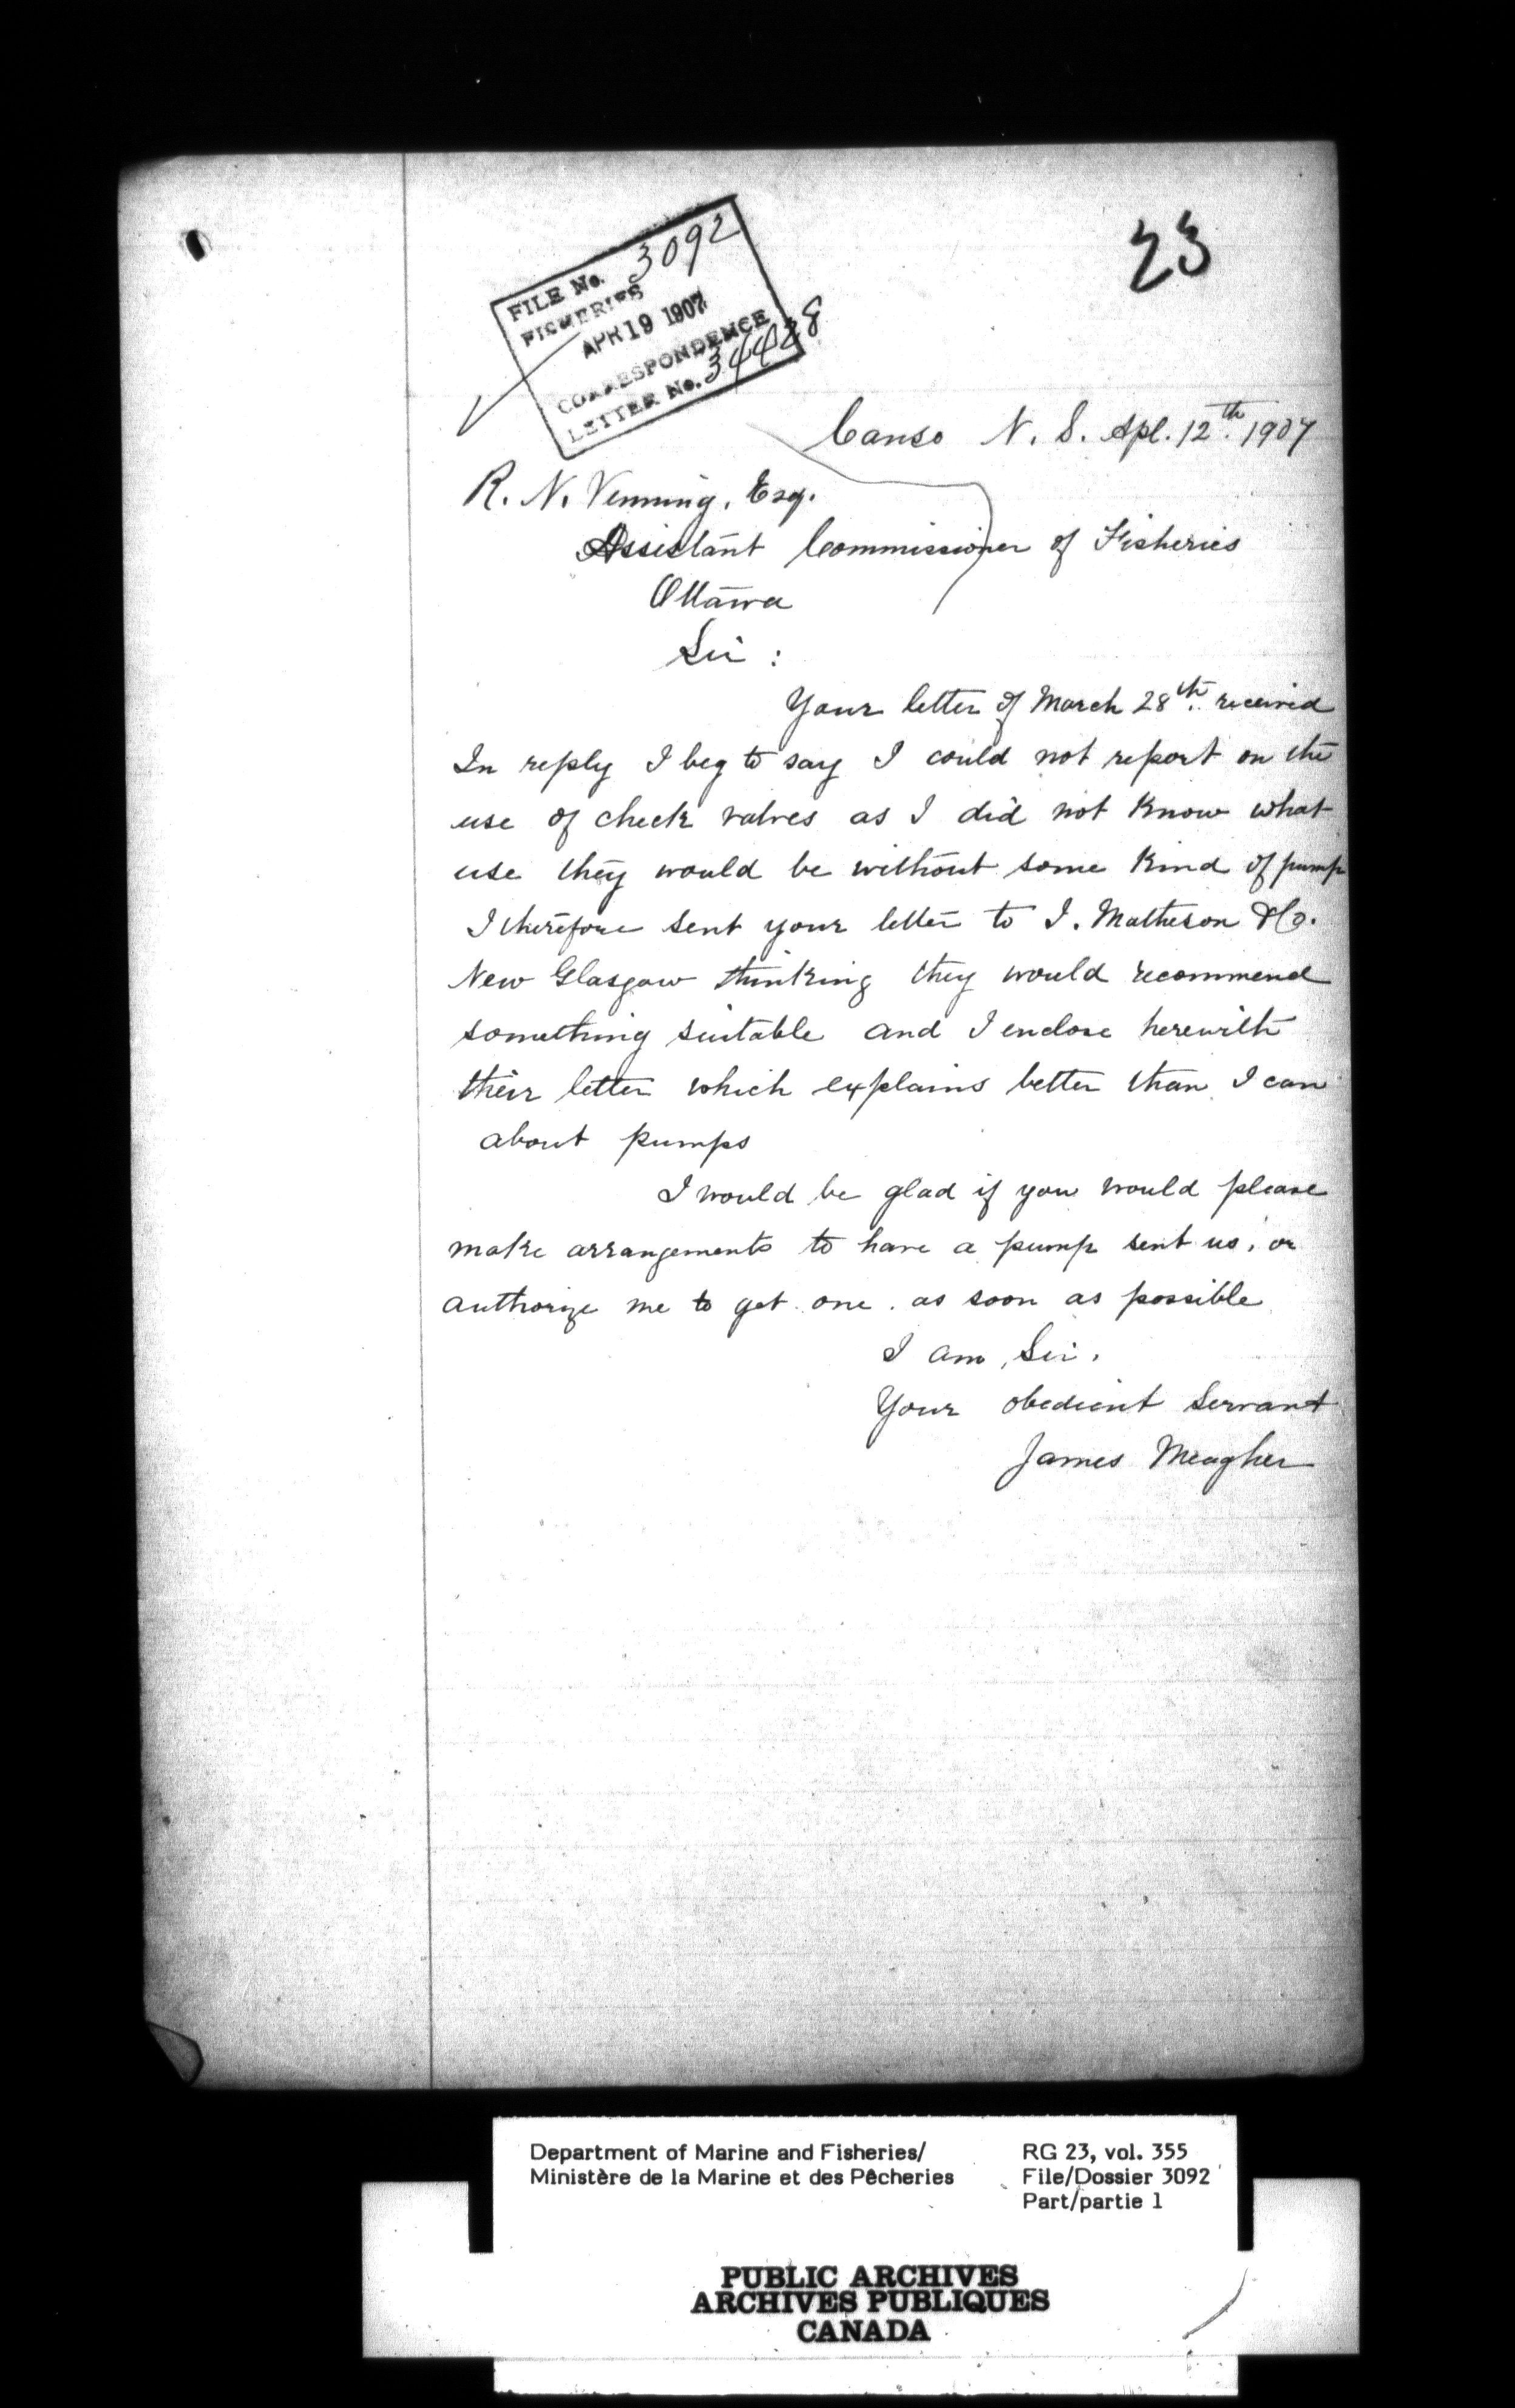 23
FILE No. 3092
FISHERIES
APR 19 1907
CORRESPONDENCE
LETTER No. 34428
Canso N. S. Apl. 12th. 1907
R. N. Venning, Esq.
Assistant Commissioner of Fisheries
Ottawa
Sir :
Your letter of March 28th. received
In reply I beg to say I could not report on the
use of check valves as I did not know what
use they would be without some kind of pump
I therefore sent your letter to I. Matheson & Co.
New Glasgow thinking they would recommend
something suitable and I enclose herewith
their letter which explains better than I can
about pumps
I would be glad if you would please
make arrangements to have a pump sent us, or
authorize me to get one. as soon as possible
I am, Sir,
Your obedient Servant
James Meagher
Department of Marine and Fisheries/ RG 23, vol. 355
Ministère de la Marine et des Pêcheries File/Dossier 3092
Part/partie 1
PUBLIC ARCHIVES
ARCHIVES PUBLIQUES
CANADA